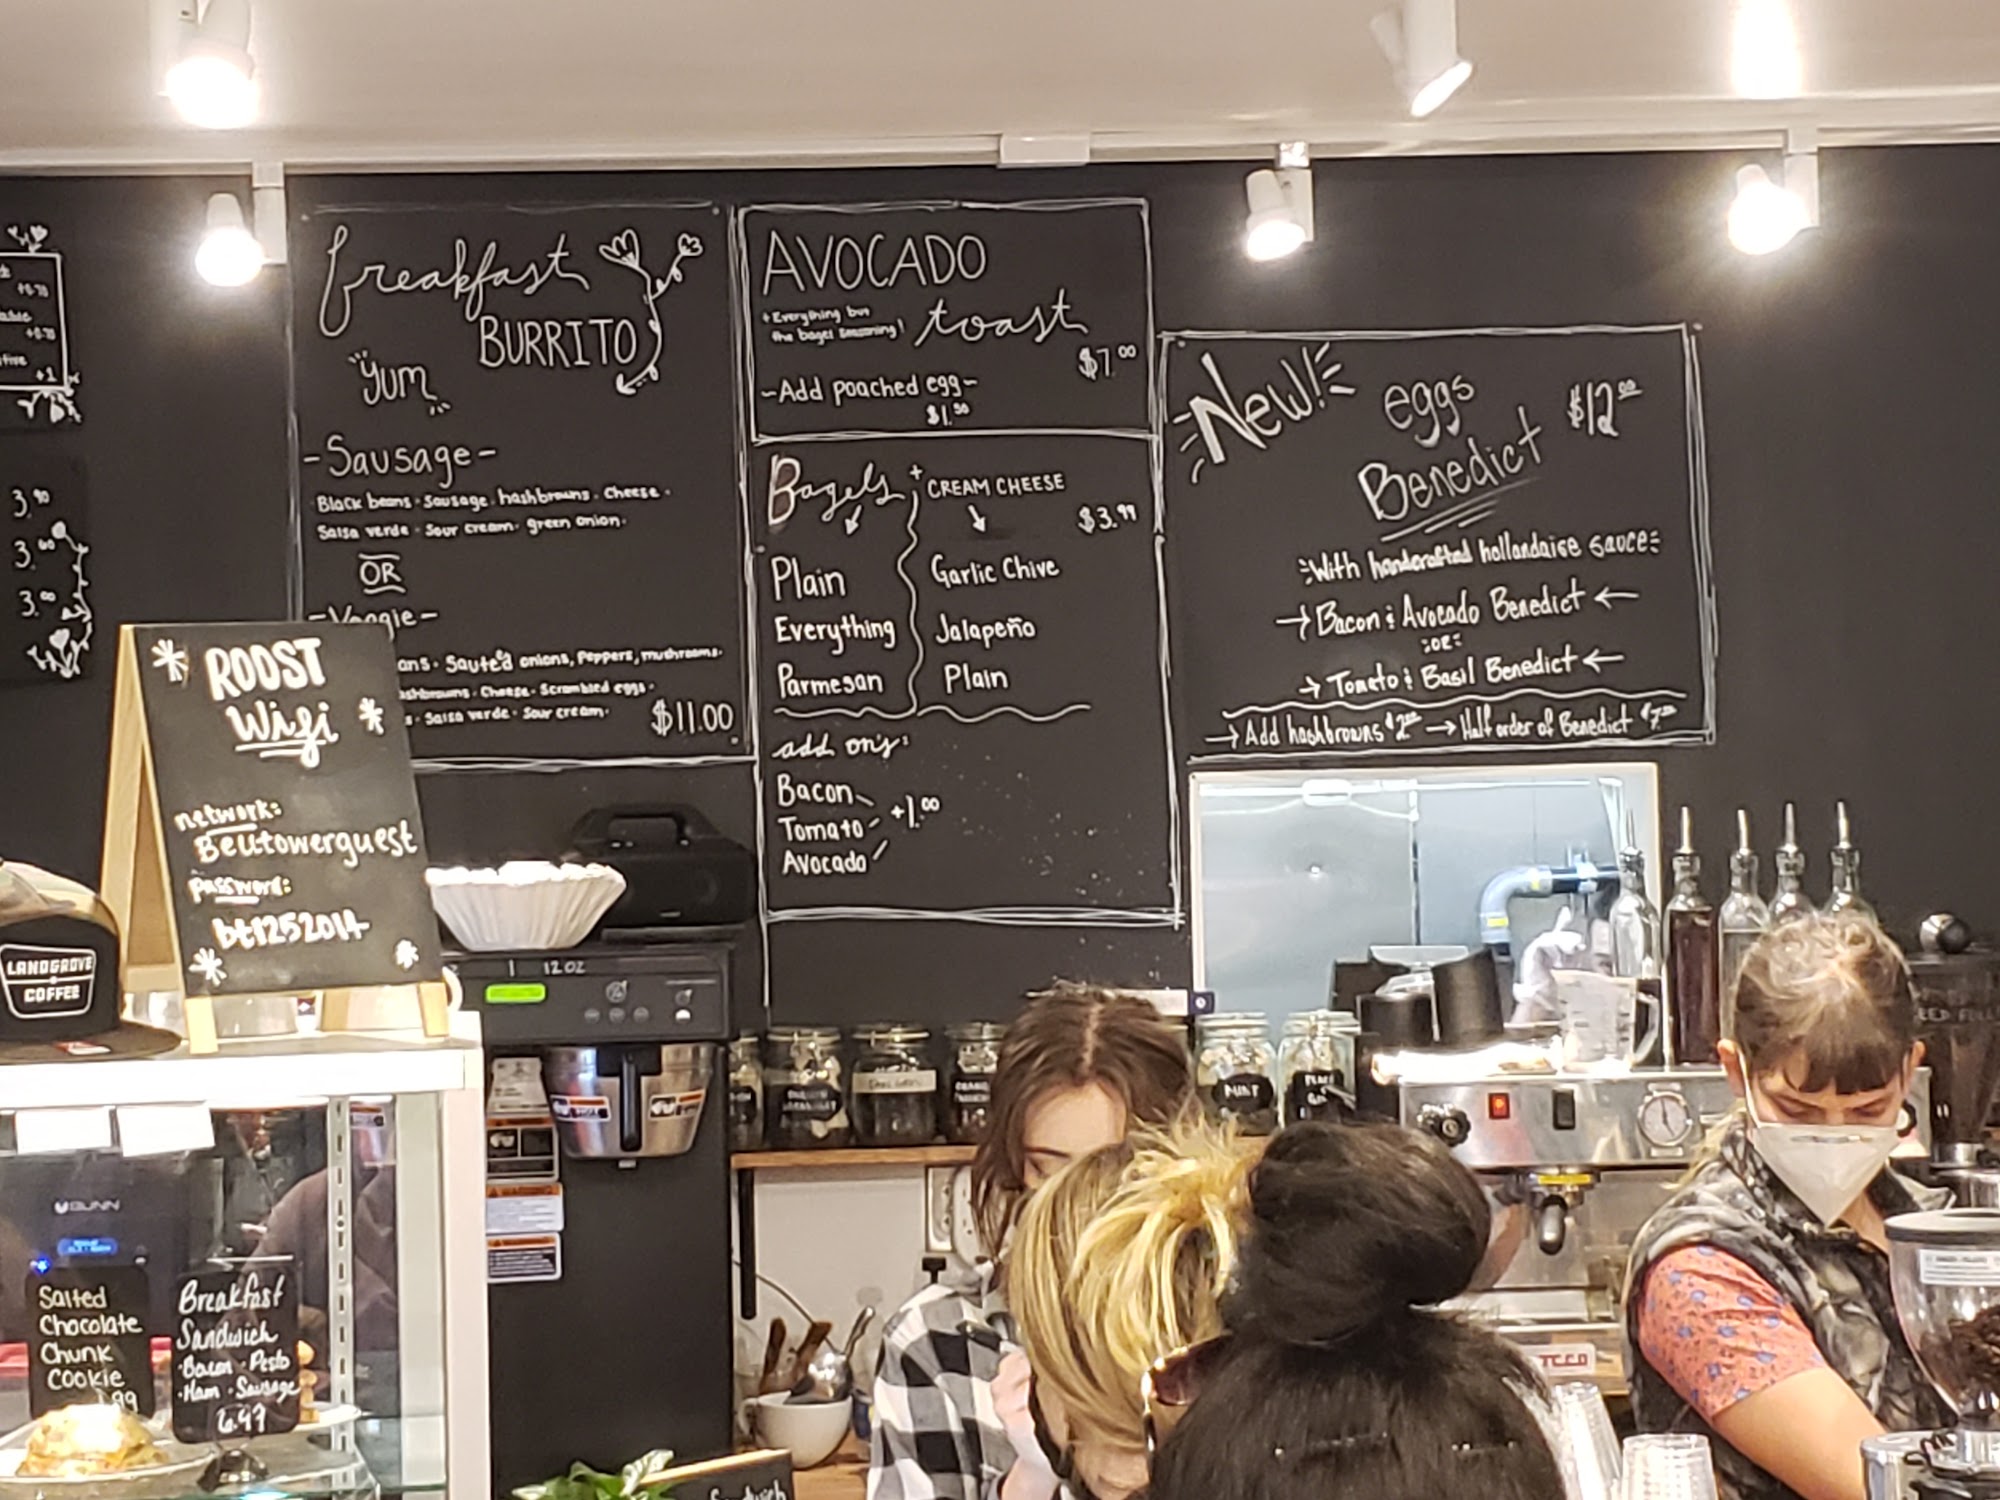 +0.70
+0.70
+1
3.90
3.60
3.00
breakfast
BURRITO
YUM
-Sausage-
Black beans · Sausage · hashbrowns · Cheese ·
Salsa verde · Sour cream · green onion ·
OR
-Veggie-
Sauteed onions, Peppers, mushrooms.
Cheese · Scrambled eggs ·
Salsa verde · Sour cream ·
$11.00
AVOCADO
+ Everything but
the bagel seasoning!
toast
$7.00
-Add poached egg-
$1.50
Bagels + CREAM CHEESE
$3.99
Plain
Everything
Parmesan
Garlic Chive
Jalapeño
Plain
add on's:
Bacon
Tomato
Avocado
+1.00
New! eggs
Benedict
$12.00
With handcrafted hollandaise sauce
→ Bacon & Avocado Benedict ←
:OR:
→ Tomato & Basil Benedict ←
→ Add hashbrowns $2.00 → Half order of Benedict $7.00
ROOST
Wifi
network:
Beutowerguest
password:
bt1252014
LANDGROVE
COFFEE
12 OZ
BUNN
Salted
Chocolate
Chunk
Cookie
Breakfast
Sandwich
· Bacon · Pesto
· Ham · Sausage
6.97
MINT
Sandwich